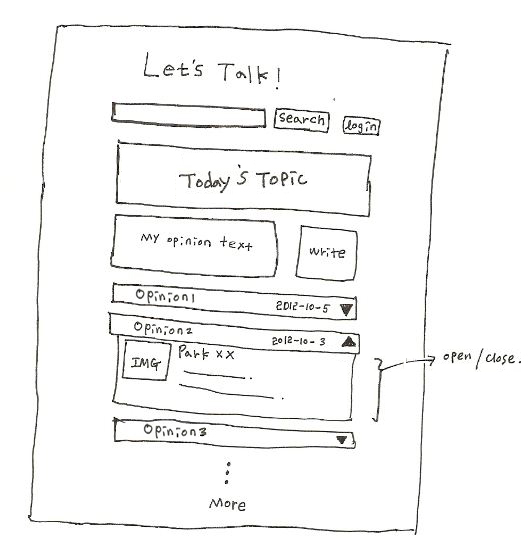 Let's Talk!
Search
login
Today's Topic
My opinion text
write
Opinion1 2012-10-5
Opinion2 2012-10-3
IMG
Park xx
open/close.
Opinion3
More